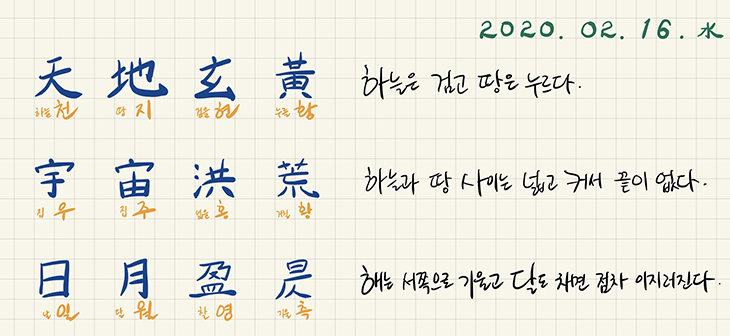 2020. 02. 16. 水
天 地 玄 黃 하늘은 검고 땅은 누르다.
하늘 천 땅 지 검을 현 누를 황
宇 宙 洪 荒 하늘과 땅 사이는 넓고 커서 끝이 없다.
집 우 집 주 넓을 홍 거칠 황
日 月 盈 昃 해는 서쪽으로 기울고 달도 차면 점차 이지러진다.
날 일 달 월 찰 영 기울 측